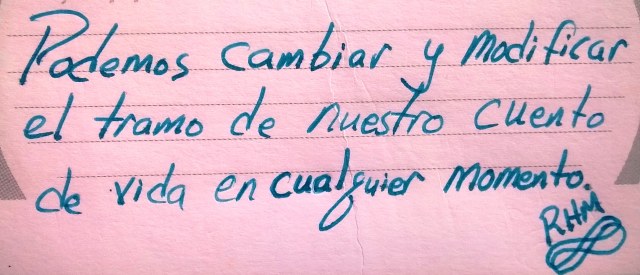 Podemos cambiar y modificar
el tramo de nuestro cuento
de vida en cualquier momento.
RHM